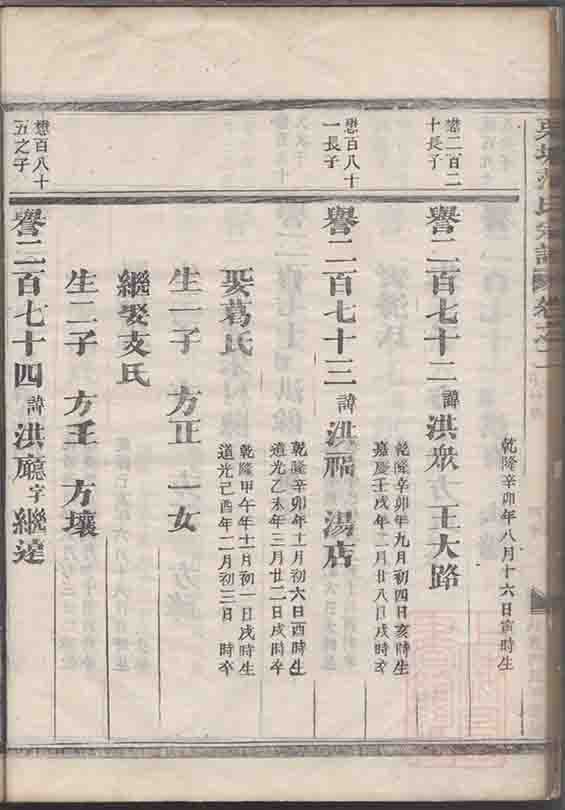 宗譜 卷之二
乾隆辛卯年八月十六日寅時生
懋二百二十長子
譽二百七十二 諱 洪眾 方 王大路
乾隆辛卯年九月初四日亥時生
嘉慶壬戌年二月廿八日戌時卒
懋百八十一長子
譽二百七十三 諱 洪福 湯店
乾隆辛卯年十月初六日酉時生
道光乙未年三月廿二日戌時卒
娶葛氏
乾隆甲午年十一月初一日戌時生
道光己酉年二月初三日 時卒
生一子 方正 一女
繼娶支氏
生二子 方玉 方壤
懋百八十五之子
譽二百七十四 諱 洪廳 字 繼達